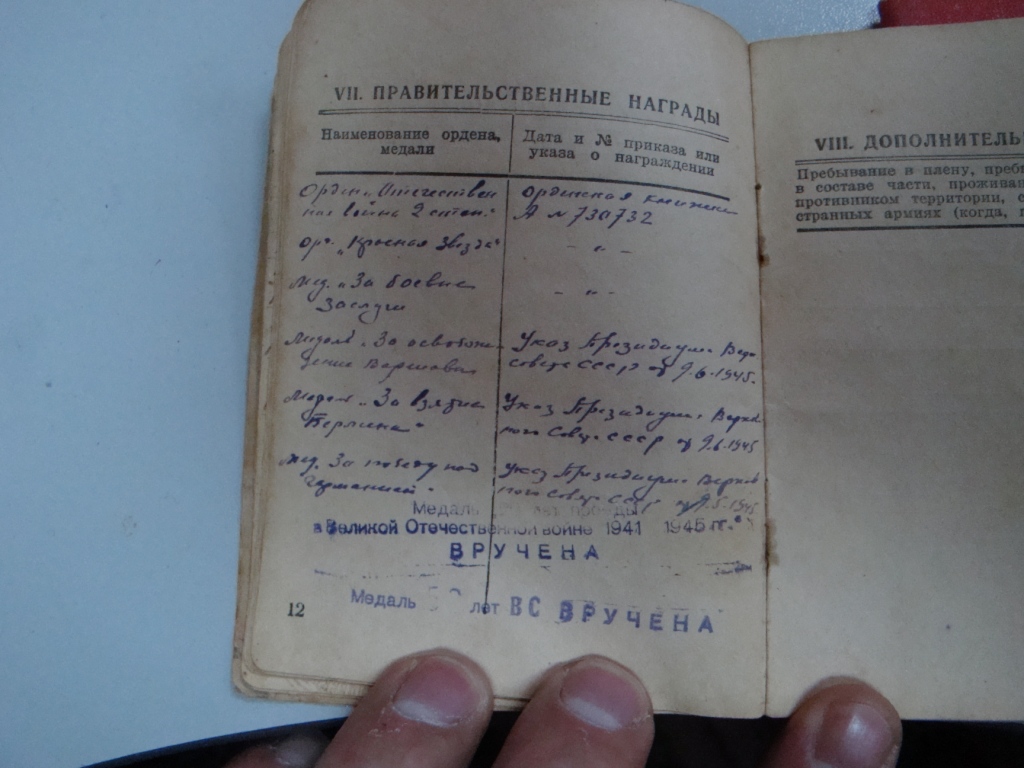 VII. ПРАВИТЕЛЬСТВЕННЫЕ НАГРАДЫ
Наименование ордена, медали
Дата и № приказа или указа о награждении
Орден „Отечествен
ная война 2 степ."
ординская книжка
А № 730732
Ор. „Красная Звезда"
– " –
Мед. „За боевые
заслуги
– " –
Медаль „За освобож-
дение Варшавы
Указ Президиума Верх
Совета СССР от 9.6.1945.
Медаль „За взятие
Берлина"
Указ Президиума Верхов
ного Совета СССР от 9.6.1945
Мед. За победу над
Германией.
Указ Президиума Верхов
ного Совета СССР от 9.5.1945
Медаль лет победы
в Великой Отечественной войне 1941 1945 гг."
ВРУЧЕНА
Медаль 50 лет ВС ВРУЧЕНА
12
VIII. ДОПОЛНИТЕЛЬ
Пребывание в плену, преб
в составе части, прожива
противником территории, с
странных армиях (когда,